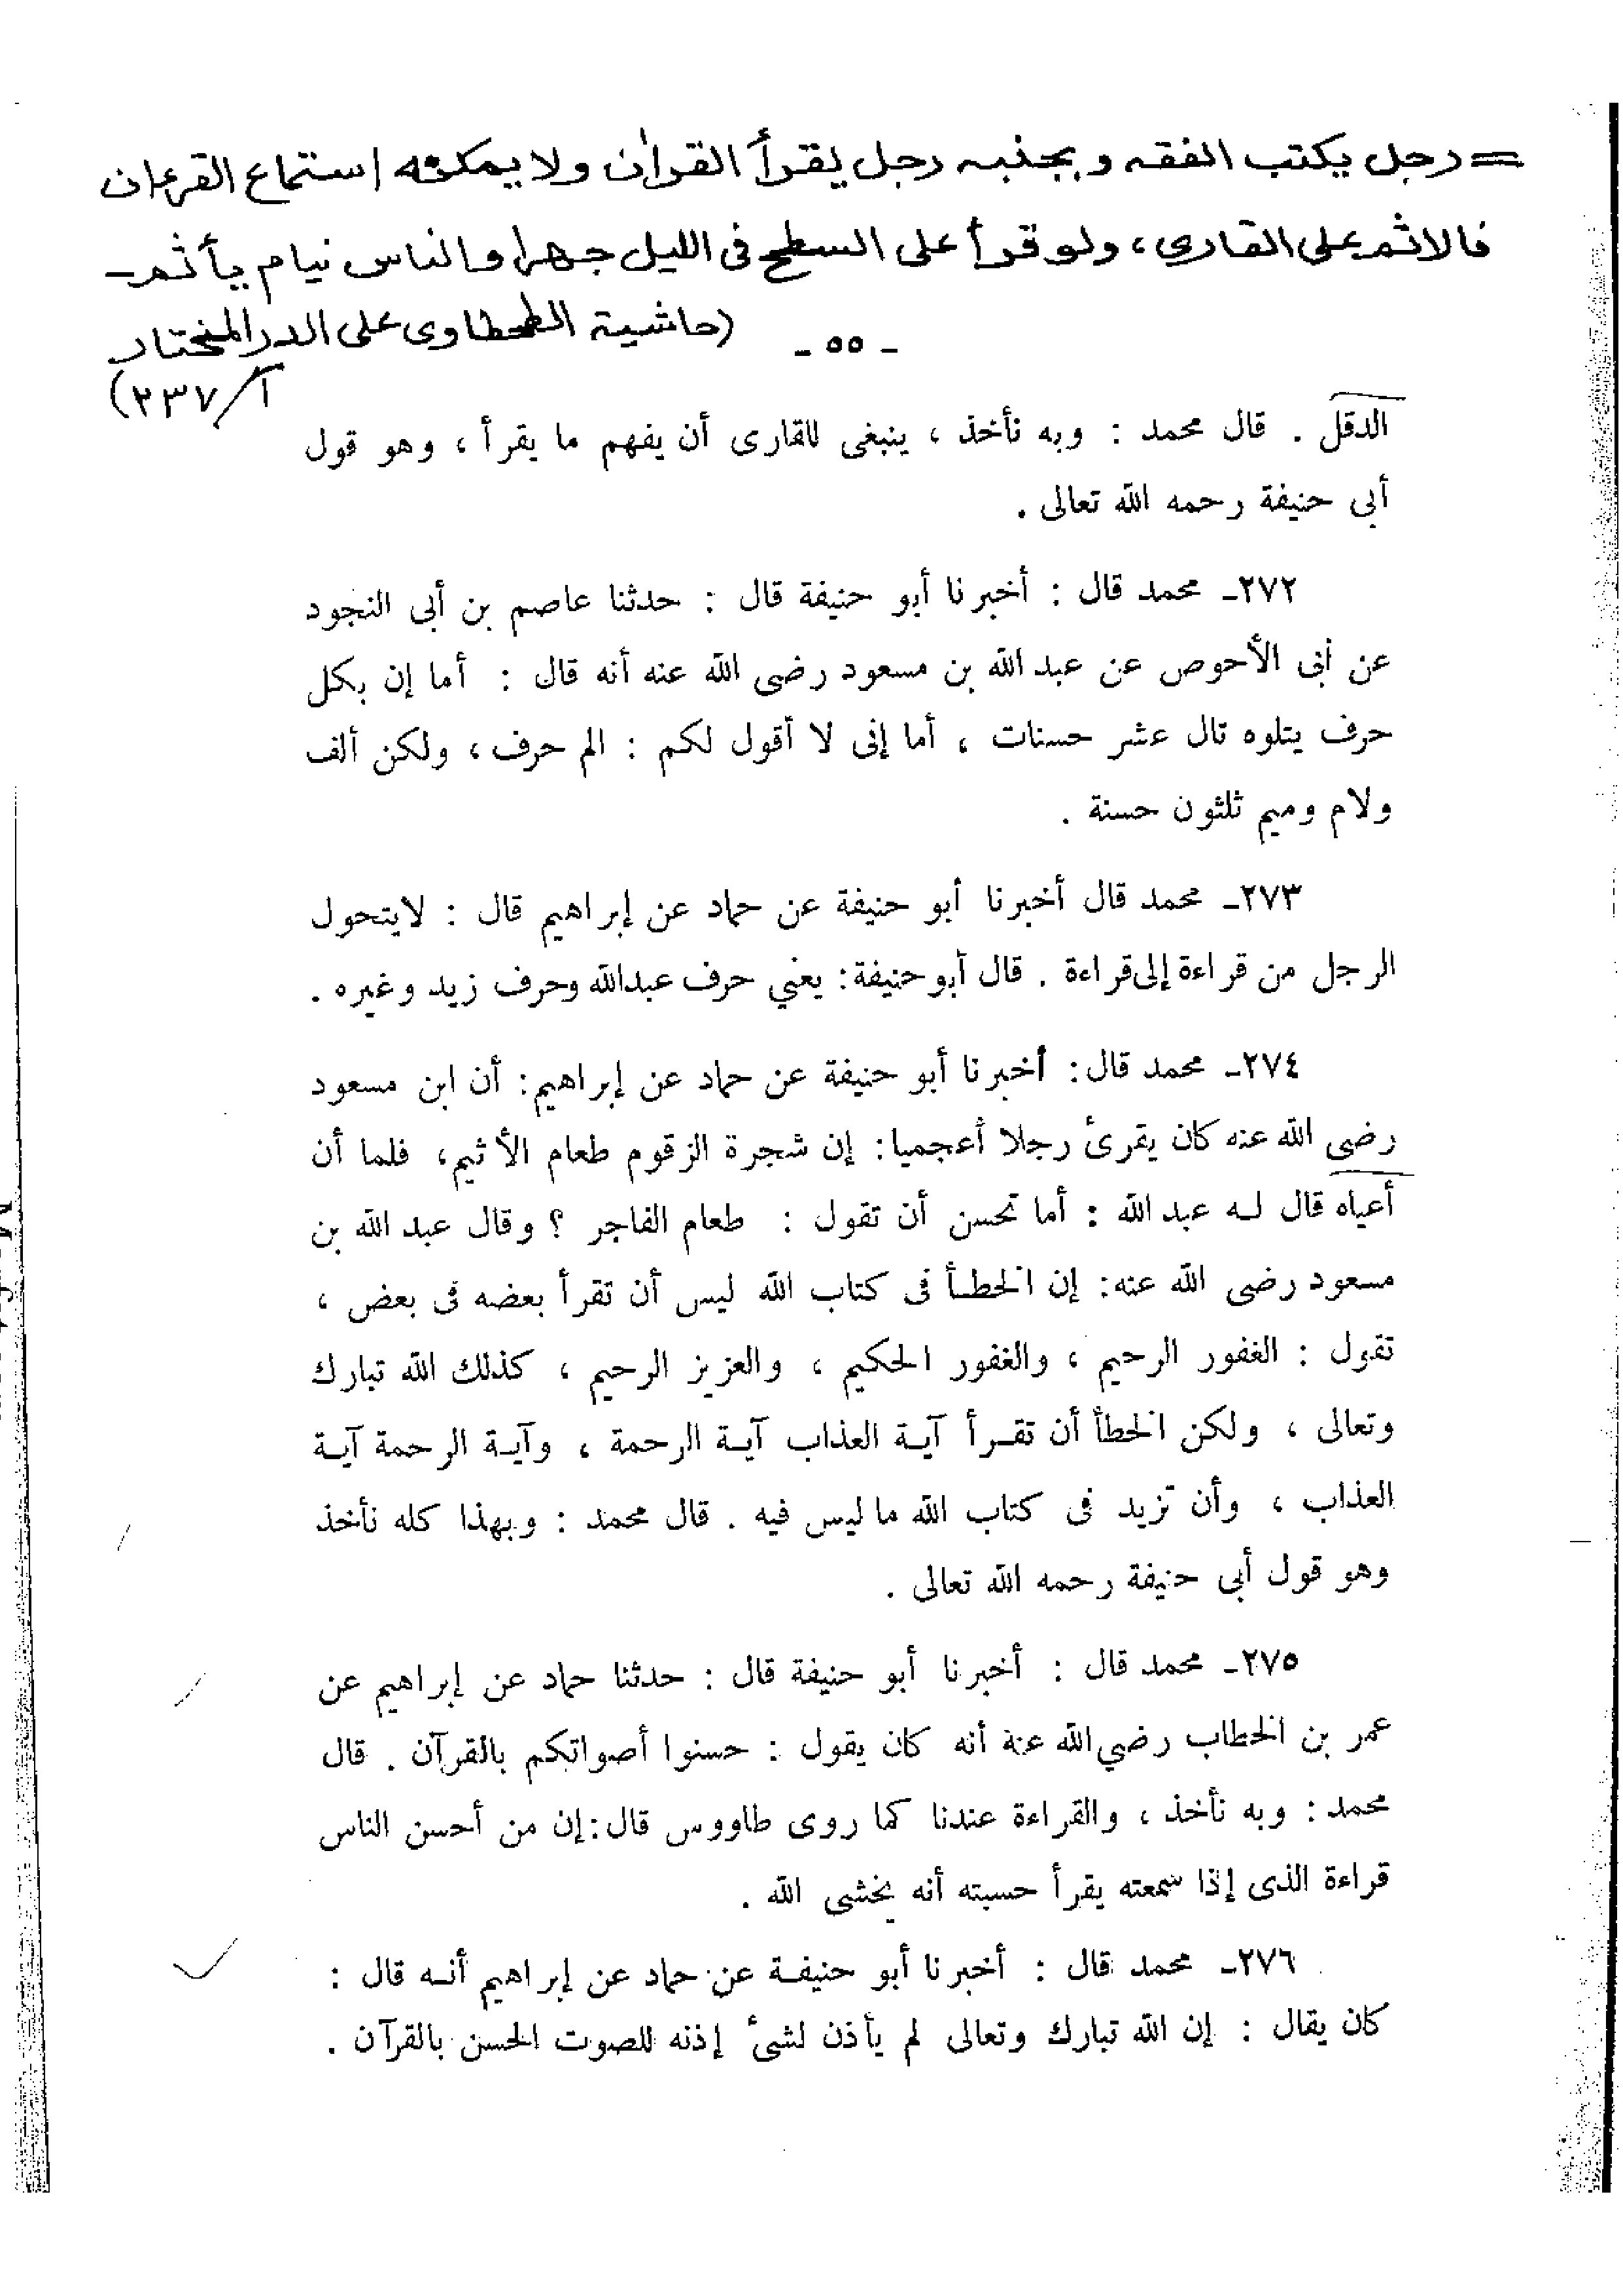 = رجل يكتب الفقه وبجنبه رجل يقرأ القرأن ولا يمكنه استماع القرءان
فالاثم على القارى، ولو قرأ على السطح فى الليل جهرا والناس نيام يأثم-
(حاشية الطحطاوى على الدر المختار
١/٢٣٧)
- ٥٥ -
الدقل . قال محمد : وبه نأخذ ، ينبغى للقارى أن يفهم ما يقرأ ، وهو قول
أبى حنيفة رحمه الله تعالى .
٢٧٢- محمد قال : أخبرنا أبو حنيفة قال : حدثنا عاصم بن أبى النجود
عن أبى الأحوص عن عبد الله بن مسعود رضى الله عنه أنه قال : أما إن بكل
حرف يتلوه تال عشر حسنات ، أما إنى لا أقول لكم : الم حرف ، ولكن ألف
ولام وميم ثلثون حسنة .
٢٧٣- محمد قال أخبرنا أبو حنيفة عن حماد عن إبراهيم قال : لايتحول
الرجل من قراءة إلى قراءة . قال أبو حنيفة : يعني حرف عبدالله وحرف زيد وغيره .
٢٧٤- محمد قال : أخبرنا أبو حنيفة عن حماد عن إبراهيم : أن ابن مسعود
رضى الله عنه كان يقرئ رجلا أعجميا : إن شجرة الزقوم طعام الأثيم ، فلما أن
أعياه قال لـه عبد الله : أما تحسن أن تقول : طعام الفاجر ؟ وقال عبد الله بن
مسعود رضى الله عنه : إن الخطـأ فى كتاب الله ليس أن تقرأ بعضه فى بعض ،
تقول : الغفور الرحيم ، والغفور الحكيم ، والعزيز الرحيم ، كذلك الله تبارك
وتعالى ، ولكن الخطأ أن تقـرأ آيـة العذاب آيـة الرحمة ، وآيـة الرحمة آيـة
العذاب ، وأن تزيد فى كتاب الله ما ليس فيه . قال محمد : وبهذا كله نأخذ
وهو قول أبى حنيفة رحمه الله تعالى .
٢٧٥- محمد قال : أخبرنا أبو حنيفة قال : حدثنا حماد عن إبراهيم عن
عمر بن الخطاب رضي الله عنه أنه كان يقول : حسنوا أصواتكم بالقرآن . قال
محمد : وبه نأخذ ، والقراءة عندنا كما روى طاووس قال : إن من أحسن الناس
قراءة الذى إذا سمعته يقرأ حسبته أنه يخشى الله .
٢٧٦- محمد قال : أخبرنا أبو حنيفـة عن حماد عن إبراهيم أنـه قال :
كان يقال : إن الله تبارك وتعالى لم يأذن لشئ إذنه للصوت الحسن بالقرآن .